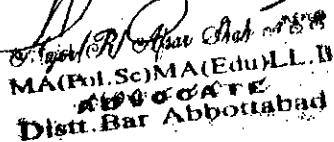 Major (R) Afsar Shah
MA(Pol.Sc)MA(Edu)LL.B
ADVOCATE
Distt.Bar Abbottabad